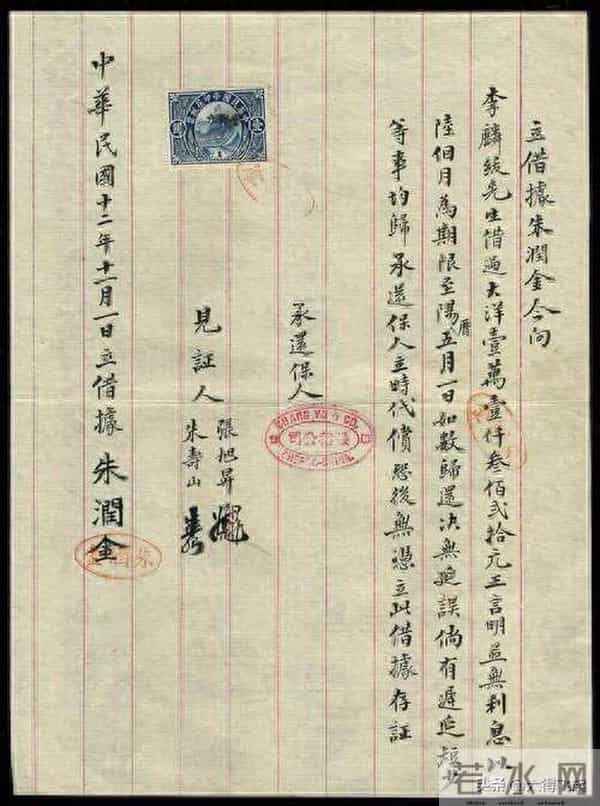 立借據朱潤金今向
李麟綏先生借過大洋壹萬壹仟叁佰弍拾元正言明並無利息以
陸個月為期限至陽曆五月一日如數歸還决無延誤倘有遲延短少
等事均歸承還保人立時代償恐後無憑立此借據存証
承還保人
& CO.
公司
見証人
張旭昇
朱壽山
中華民國十二年十一月一日立借據 朱潤金
若水网
头条